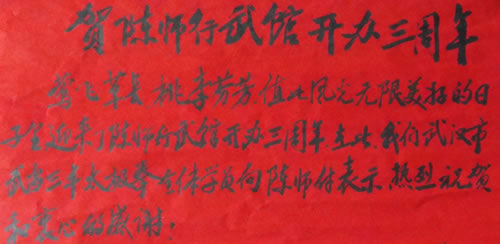 贺陈师行武馆开办三周年
莺飞草长 桃李芬芳.值此风光无限美好的日
子里迎来了陈师行武馆开办三周年.在此,我们武汉市
武当三丰太极拳全体学员向陈师付表示热烈祝贺
和衷心的感谢!